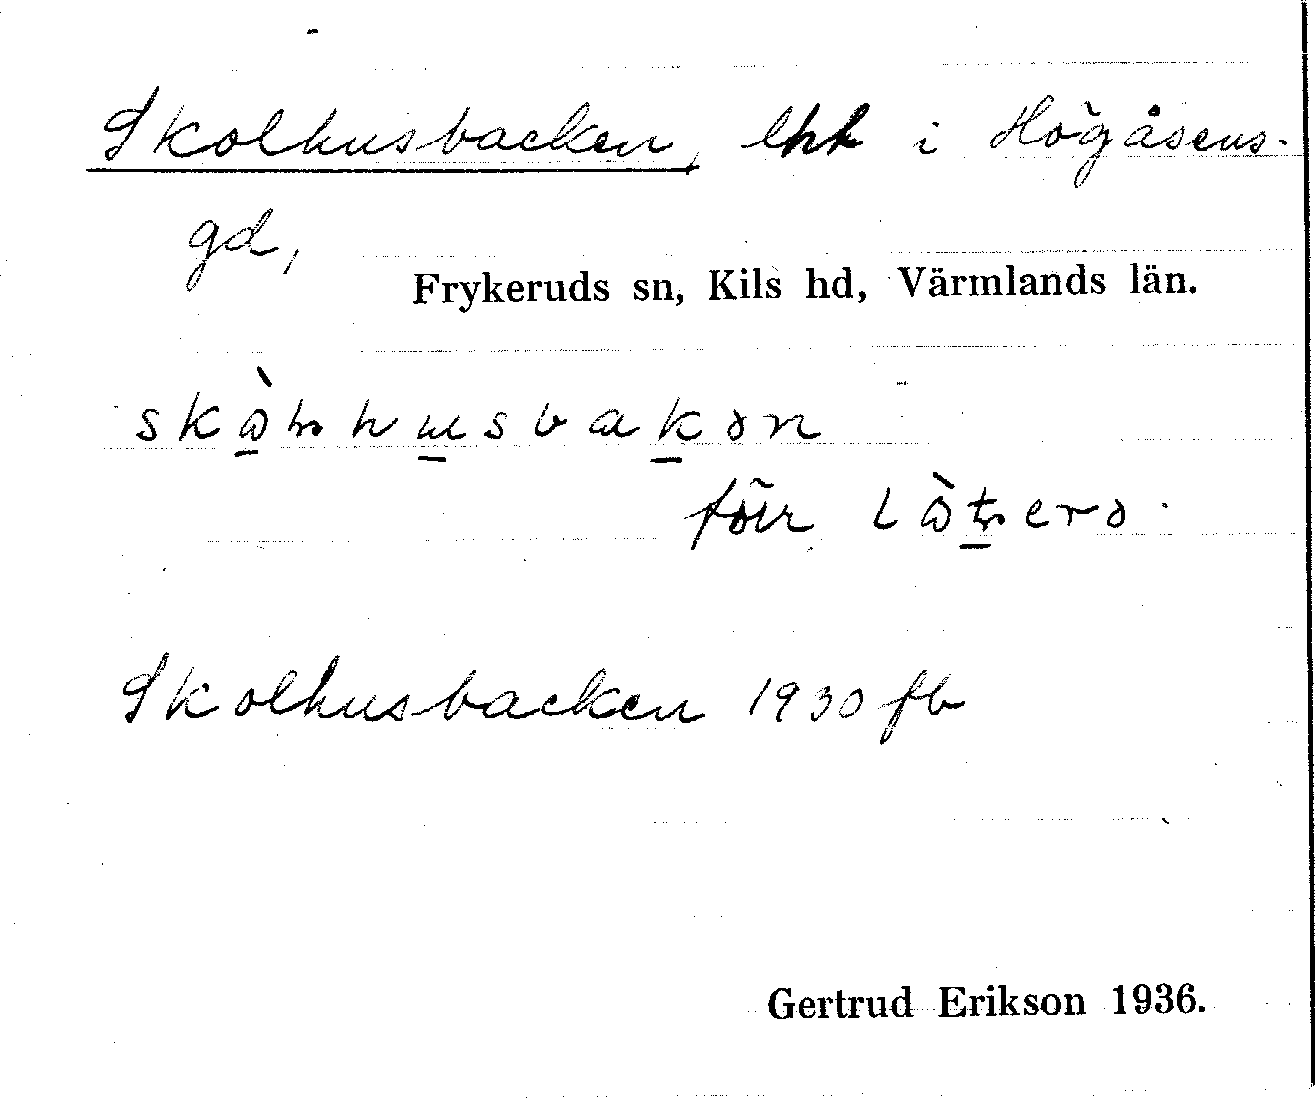 Skolhusbacken, lht i Högåsens-
gd,
Frykeruds sn, Kils hd, Värmlands län.
Skolhusbacken 1930 fb
Gertrud Erikson 1936.